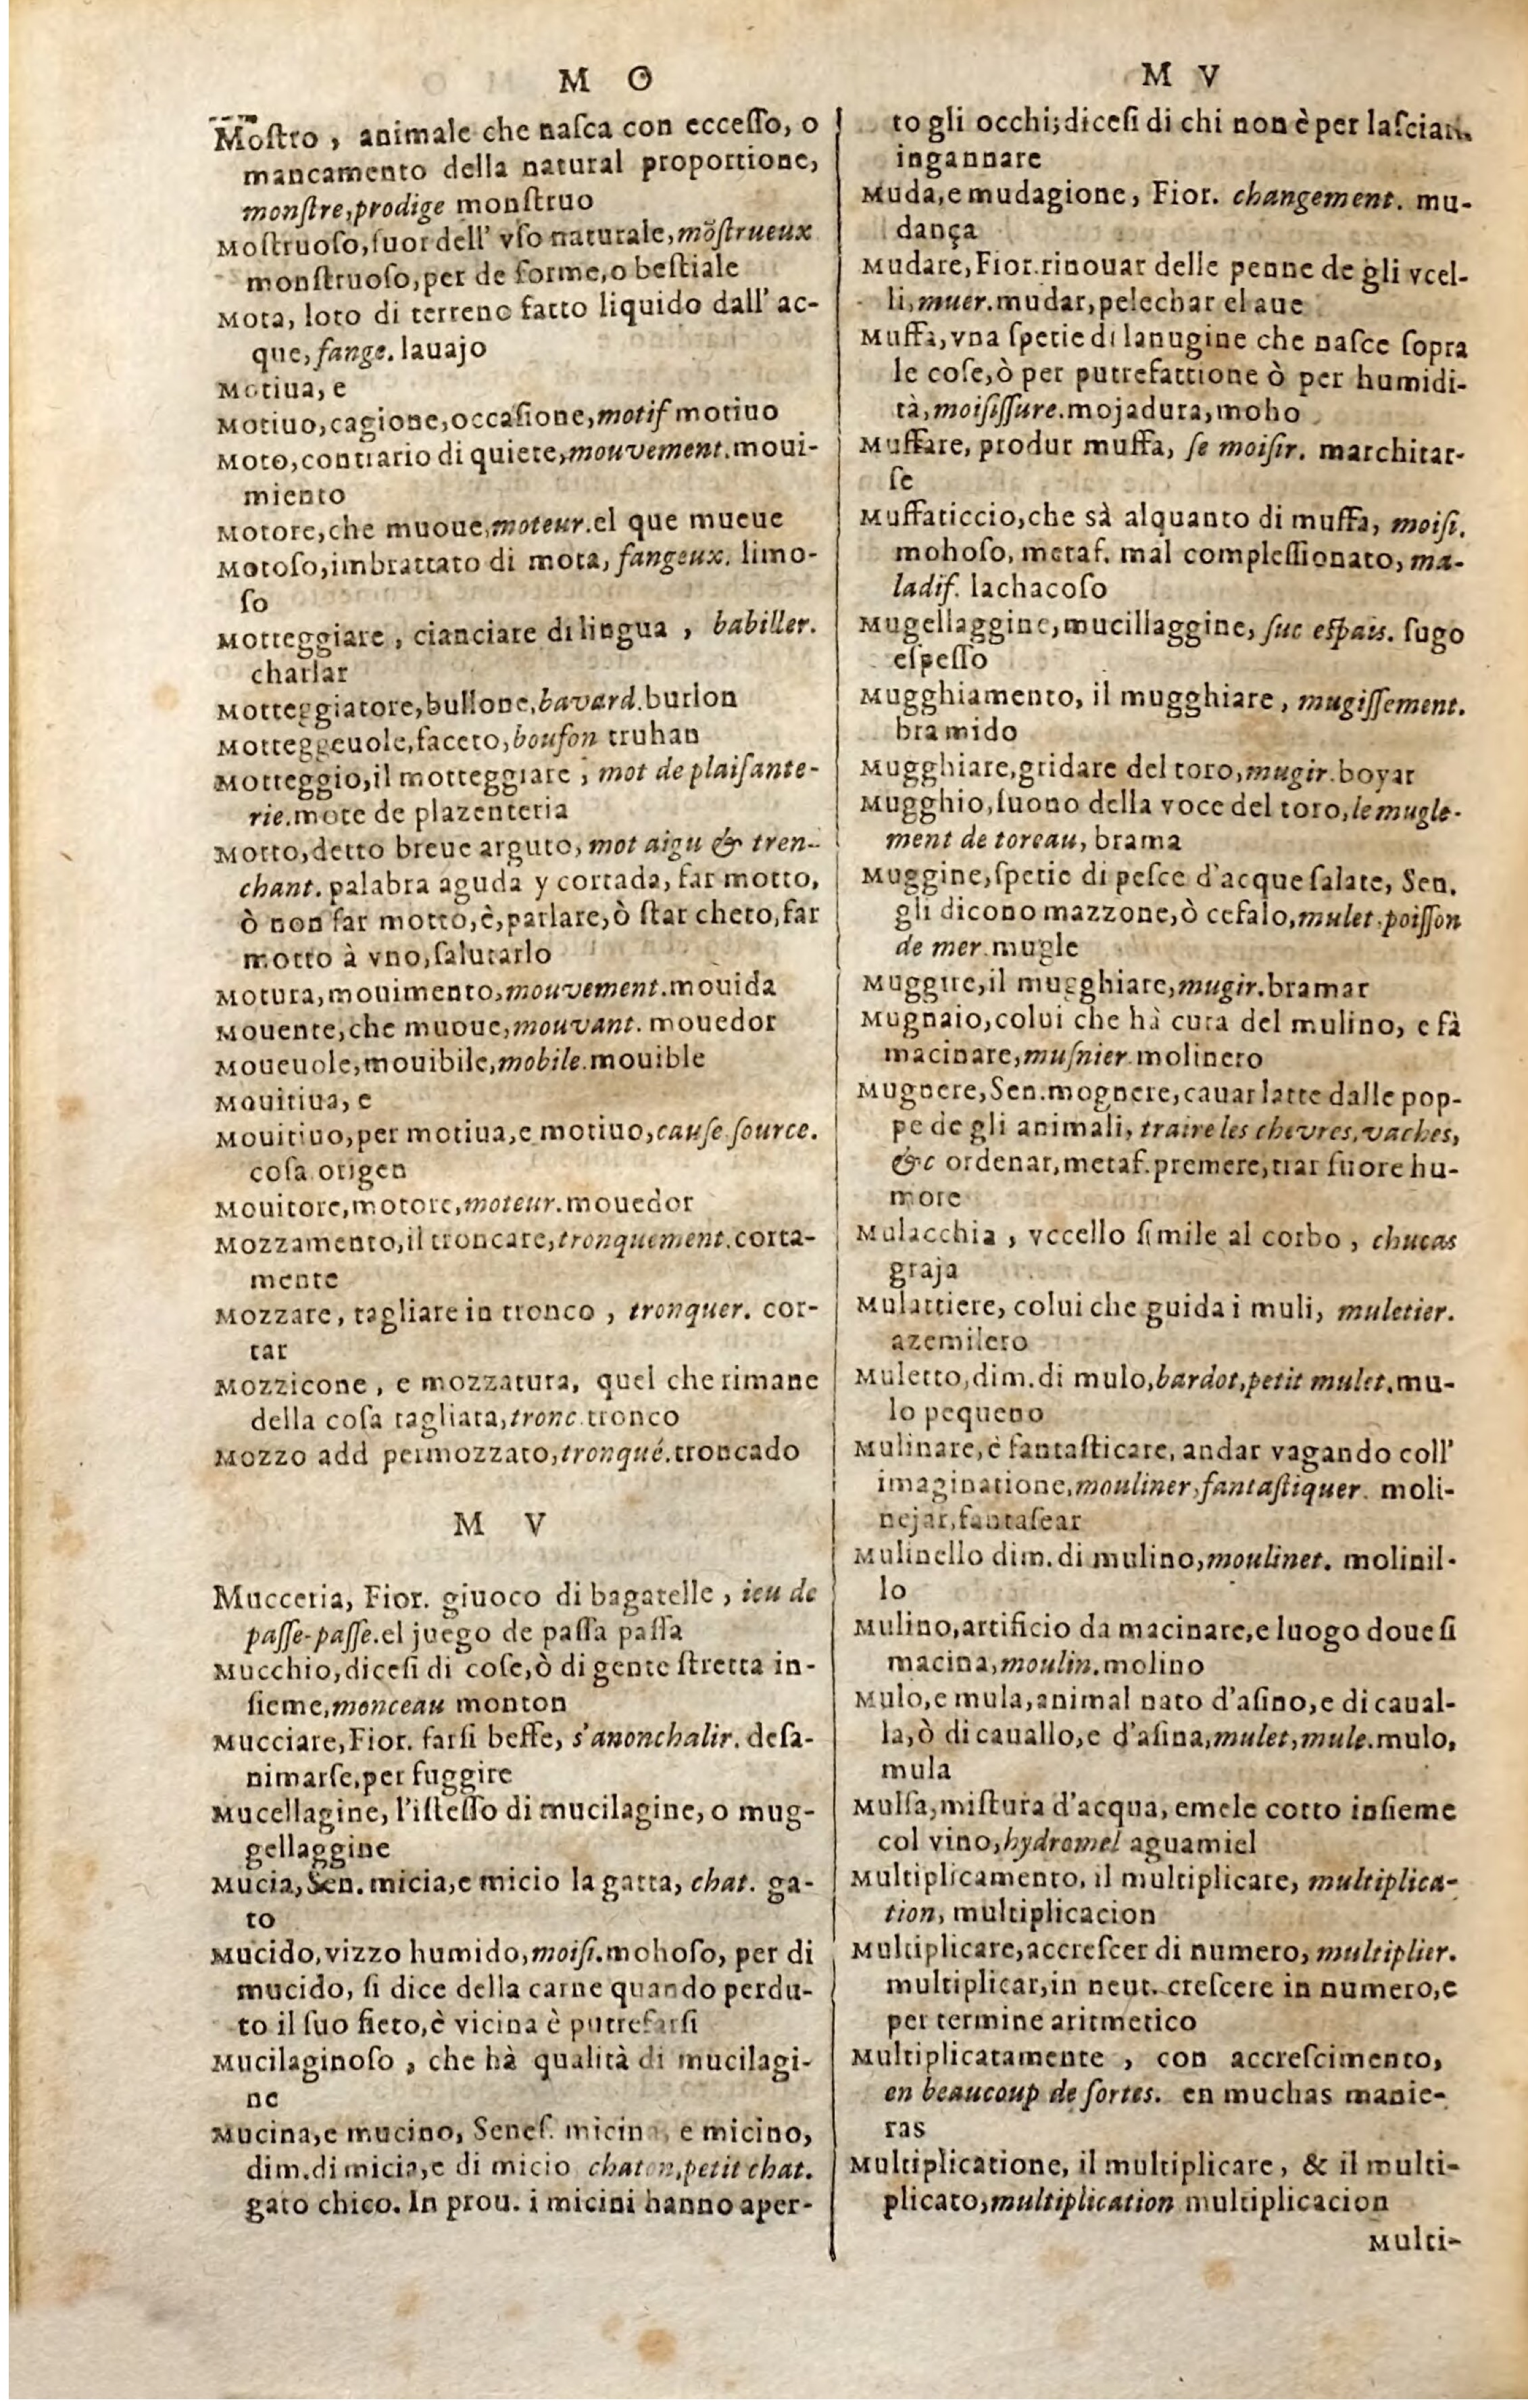 M O
Moſtro, animale che naſca con ecceſſo, o
mancamento della natural proportione,
monſtre, prodige monſtruo
Moſtruoſo, fuor dell' vſo naturale, mõſtrueux
monſtruoſo, per de forme, o beſtiale
Mota, loto di terreno fatto liquido dall' ac-
que, fange. lauajo
Motiua, e
Motiuo, cagione, occaſione, motif motiuo
Moto, contrario di quiete, mouvement. moui-
miento
Motore, che muoue, moteur. el que mueue
Motoſo, imbrattato di mota, fangeux. limo-
ſo
Motteggiare, cianciare di lingua, babiller.
charlar
Motteggiatore, buffone, bavard. burlon
Motteggeuole, faceto, boufon truhan
Motteggio, il motteggiare, mot de plaiſante-
rie. mote de plazenteria
Motto, detto breue arguto, mot aigu & tren-
chant. palabra aguda y cortada, far motto,
ò non far motto, è, parlare, ò ſtar cheto, far
motto à vno, ſalutarlo
Motura, mouimento, mouvement. mouida
Mouente, che muoue, mouvant. mouedor
Moueuole, mouibile, mobile. mouible
Mouitiua, e
Mouitiuo, per motiua, e motiuo, cauſe ſource.
coſa origen
Mouitore, motore, moteur. mouedor
Mozzamento, il troncare, tronquement. corta-
mente
Mozzare, tagliare in tronco, tronquer. cor-
tar
Mozzicone, e mozzatura, quel che rimane
della coſa tagliata, tronc tronco
Mozzo add permozzato, tronqué. troncado
M V
Mucceria, Fior. giuoco di bagatelle, ieu de
paſſe-paſſe. el juego de paſſa paſſa
Mucchio, diceſi di coſe, ò di gente ſtretta in-
ſieme, monceau monton
Mucciare, Fior. farſi beffe, s'anonchalir. deſa-
nimarſe, per fuggire
Mucellagine, l'iſteſſo di mucilagine, o mug-
gellaggine
Mucia, Sen. micia, e micio la gatta, chat. ga-
to
Mucido, vizzo humido, moiſi. mohoſo, per di
mucido, ſi dice della carne quando perdu-
to il ſuo fieto, è vicina è putrefarſi
Mucilaginoſo, che hà qualità di mucilagi-
ne
Mucina, e mucino, Seneſ. micina, e micino,
dim. di micia, e di micio chaton, petit chat.
gato chico. In prou. i micini hanno aper-
M V
to gli occhi; diceſi di chi non è per laſciarſi
ingannare
Muda, e mudagione, Fior. changement. mu-
dança
Mudare, Fior. rinouar delle penne de gli vcel-
li, muer. mudar, pelechar el aue
Muffa, vna ſpetie di lanugine che naſce ſopra
le coſe, ò per putrefattione ò per humidi-
tà, moiſiſſure. mojadura, moho
Muffare, produr muffa, ſe moiſir. marchitar-
ſe
Muffaticcio, che sà alquanto di muffa, moiſi.
mohoſo, metaf. mal compleſſionato, ma-
ladif. lachacoſo
Mugellaggine, mucillaggine, ſuc eſpais. ſugo
eſpeſſo
Mugghiamento, il mugghiare, mugiſſement.
bramido
Mugghiare, gridare del toro, mugir. boyar
Mugghio, ſuono della voce del toro, le mugle-
ment de toreau, brama
Muggine, ſpetie di peſce d'acque ſalate, Sen.
gli dicono mazzone, ò cefalo, mulet, poiſſon
de mer. mugle
Muggire, il mugghiare, mugir. bramar
Mugnaio, colui che hà cura del mulino, e fà
macinare, muſnier. molinero
Mugnere, Sen. mognere, cauar latte dalle pop-
pe de gli animali, traire les chevres, vaches,
&c ordenar, metaf. premere, trar fuore hu-
more
Mulacchia, vccello ſimile al corbo, chucas
graja
Mulattiere, colui che guida i muli, muletier.
azemilero
Muletto, dim. di mulo, bardot, petit mulet. mu-
lo pequeno
Mulinare, è fantaſticare, andar vagando coll'
imaginatione, mouliner, fantaſtiquer. moli-
nejar, fantaſear
Mulinello dim. di mulino, moulinet. molinil-
lo
Mulino, artificio da macinare, e luogo doue ſi
macina, moulin. molino
Mulo, e mula, animal nato d'aſino, e di caual-
la, ò di cauallo, e d'aſina, mulet, mule. mulo,
mula
Mulſa, miſtura d'acqua, emele cotto inſieme
col vino, hydromel aguamiel
Multiplicamento, il multiplicare, multiplica-
tion, multiplicacion
Multiplicare, accreſcer di numero, multiplier.
multiplicar, in neut. creſcere in numero, e
per termine aritmetico
Multiplicatamente, con accreſcimento,
en beaucoup de ſortes. en muchas manie-
ras
Multiplicatione, il multiplicare, & il multi-
plicato, multiplication multiplicacion
Multi-